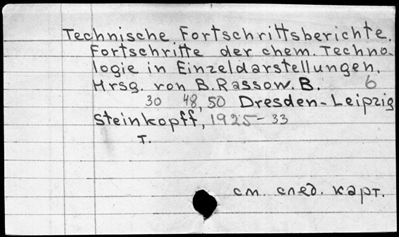 Technische Fortschrittsberichte.
Fortschritte der chem. Techno-
logie in Einzeldarstellungen.
Hrsg. von B. Rassow. B. 6
30 48, 50 Dresden-Leipzig
Steinkopff, 1925-33
т.
см. след. карт.